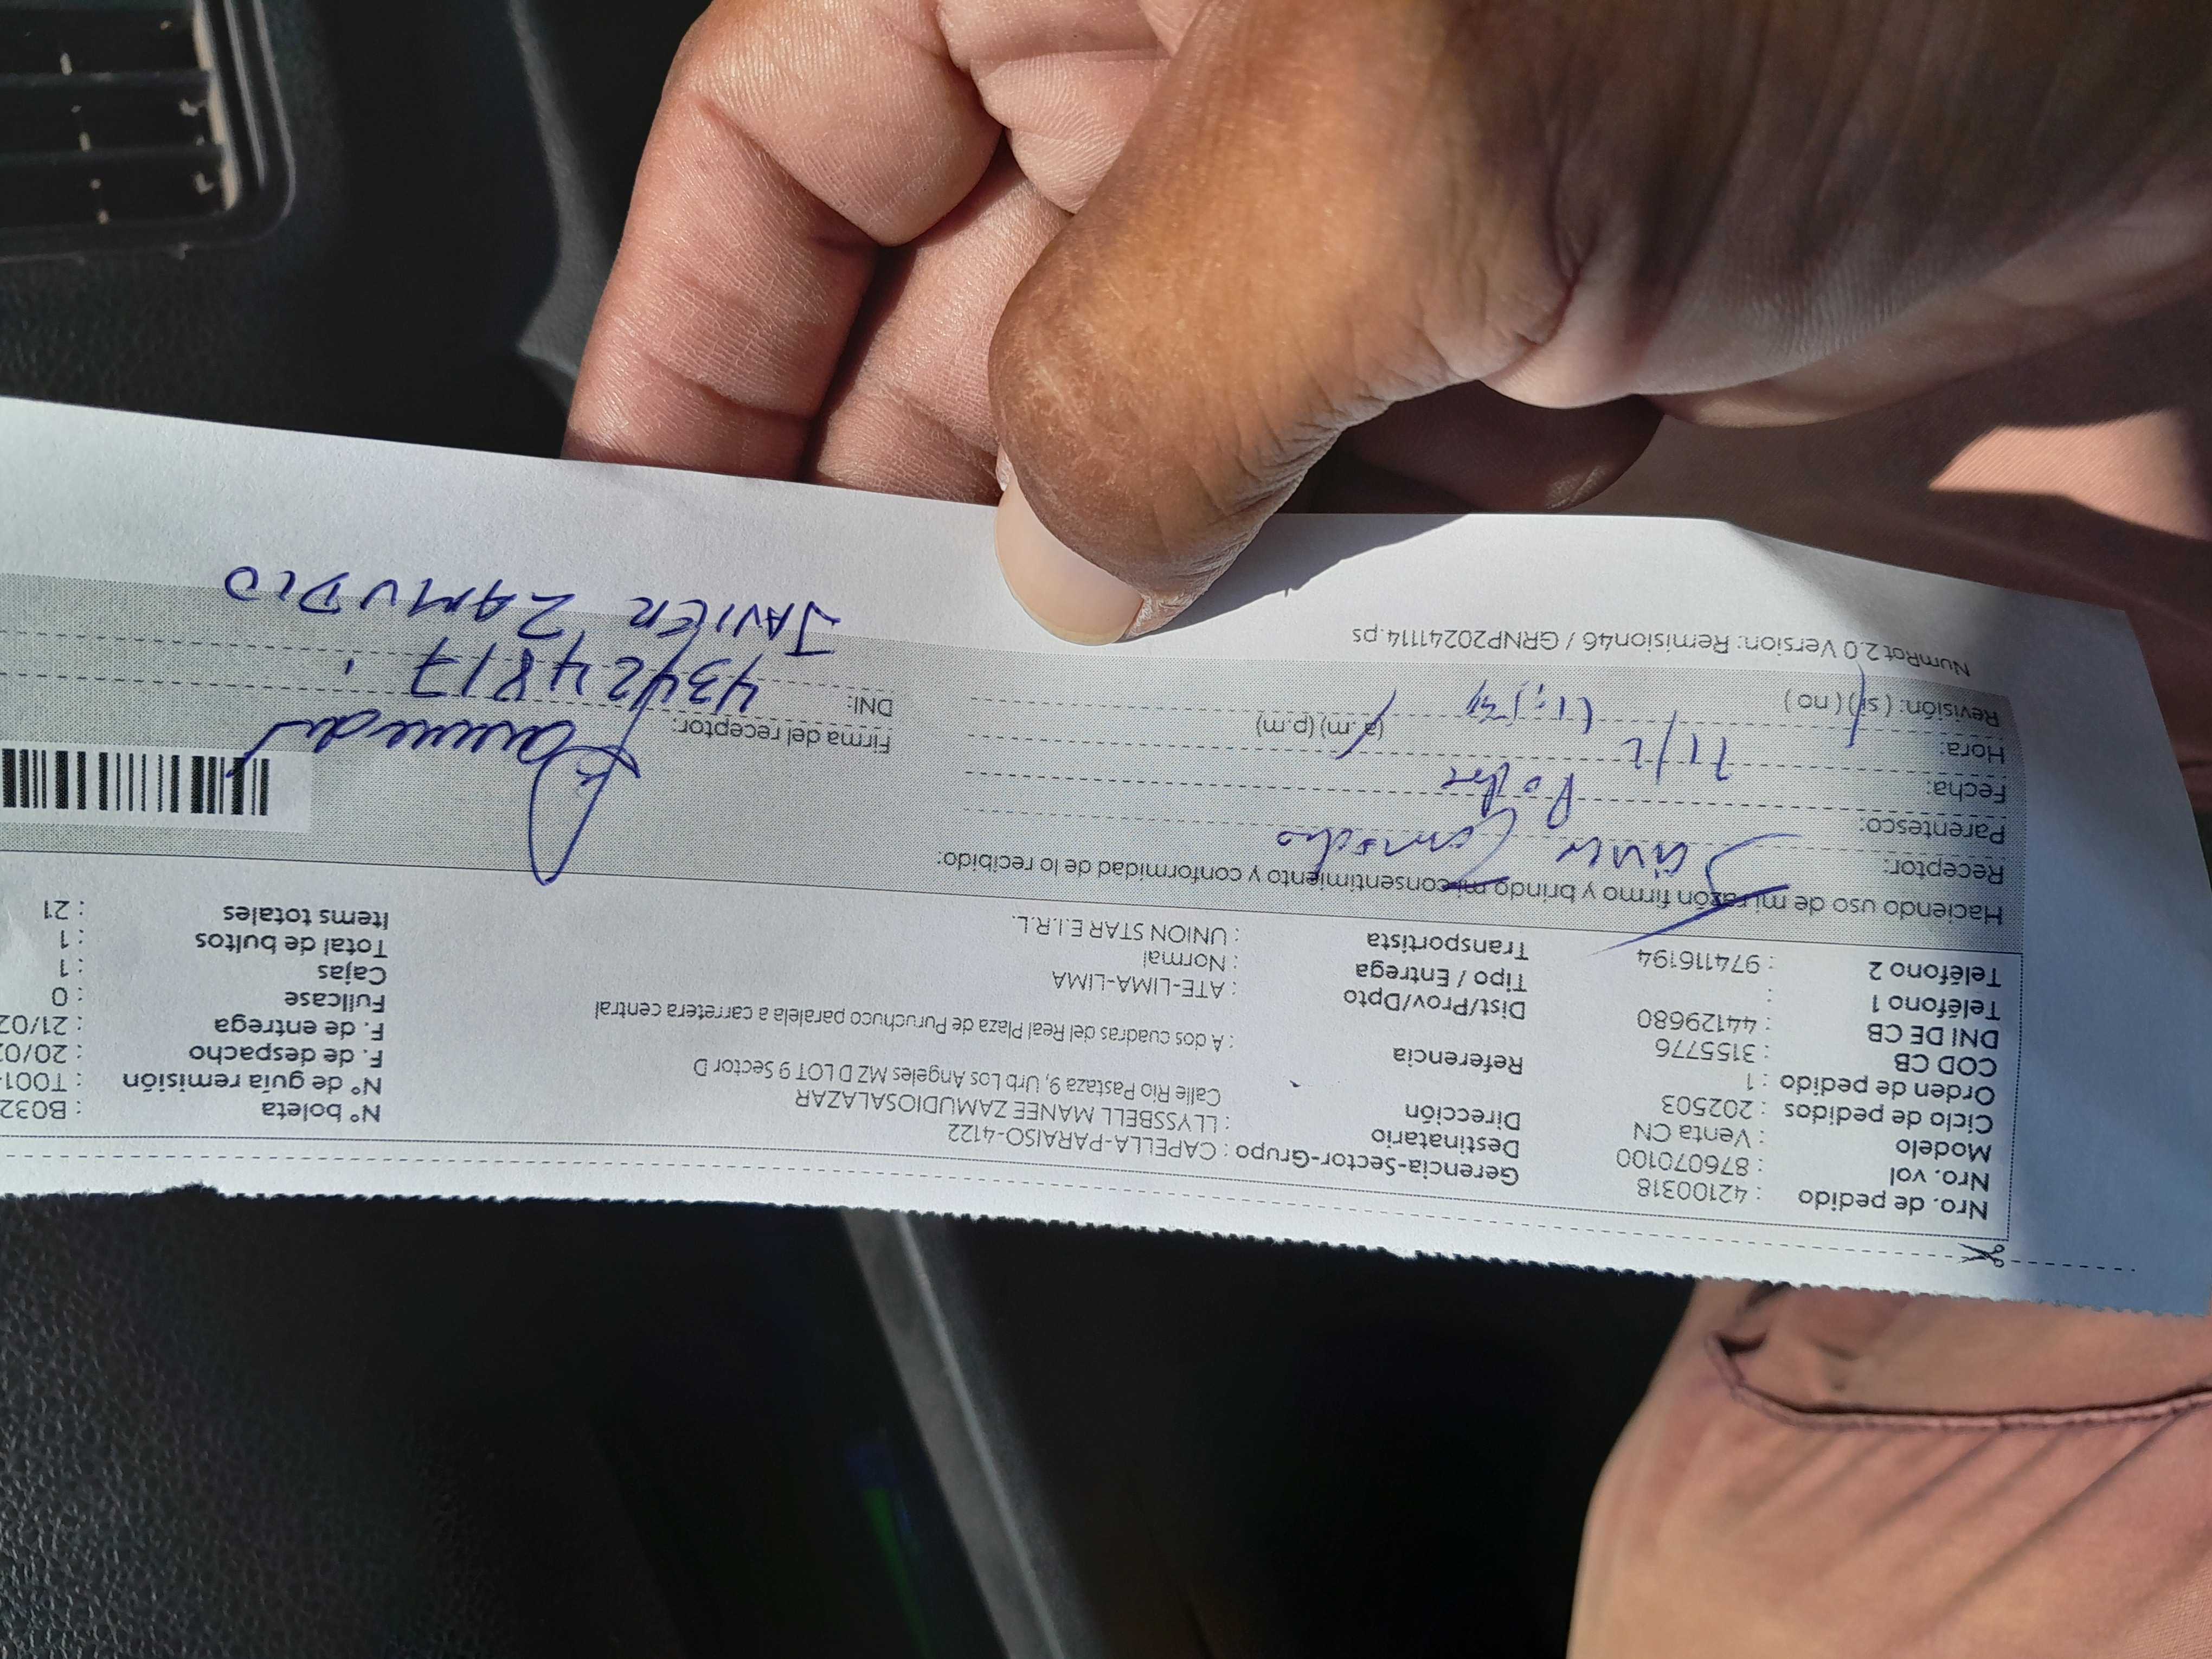 Nro. de pedido : 42100318
Nro. vol : 876070100
Modelo : Venta CN
Ciclo de pedidos : 202503
Orden de pedido : 1
COD CB : 3155776
DNI DE CB : 44129680
Teléfono 1 :
Teléfono 2 : 974116194
Gerencia-Sector-Grupo : CAPELLA-PARAISO-4122
Destinatario : LLYSSBELL MANEE ZAMUDIOSALAZAR
Dirección Calle Rio Pastaza 9, Urb Los Angeles MZ D LOT 9 Sector D
Referencia : A dos cuadras del Real Plaza de Puruchuco paralela a carretera central
Dist/Prov/Dpto : ATE-LIMA-LIMA
Tipo / Entrega : Normal
Transportista : UNION STAR E.I.R.L.
N° boleta : B032
N° de guía remisión : T001-
F. de despacho : 20/02
F. de entrega : 21/02
Fullcase : 0
Cajas : 1
Total de bultos : 1
Items totales : 21
Haciendo uso de mi razón firmo y brindo mi consentimiento y conformidad de lo recibido:
Receptor: Javier
Parentesco: Padre
Fecha:
Hora: (a.m) (p.m)
Revisión: ( si ) ( no )
Firma del receptor:
DNI: 43424817
JAVIER ZAMUDIO
NumRot 2.0 Version: Remision46 / GRNP20241114.ps